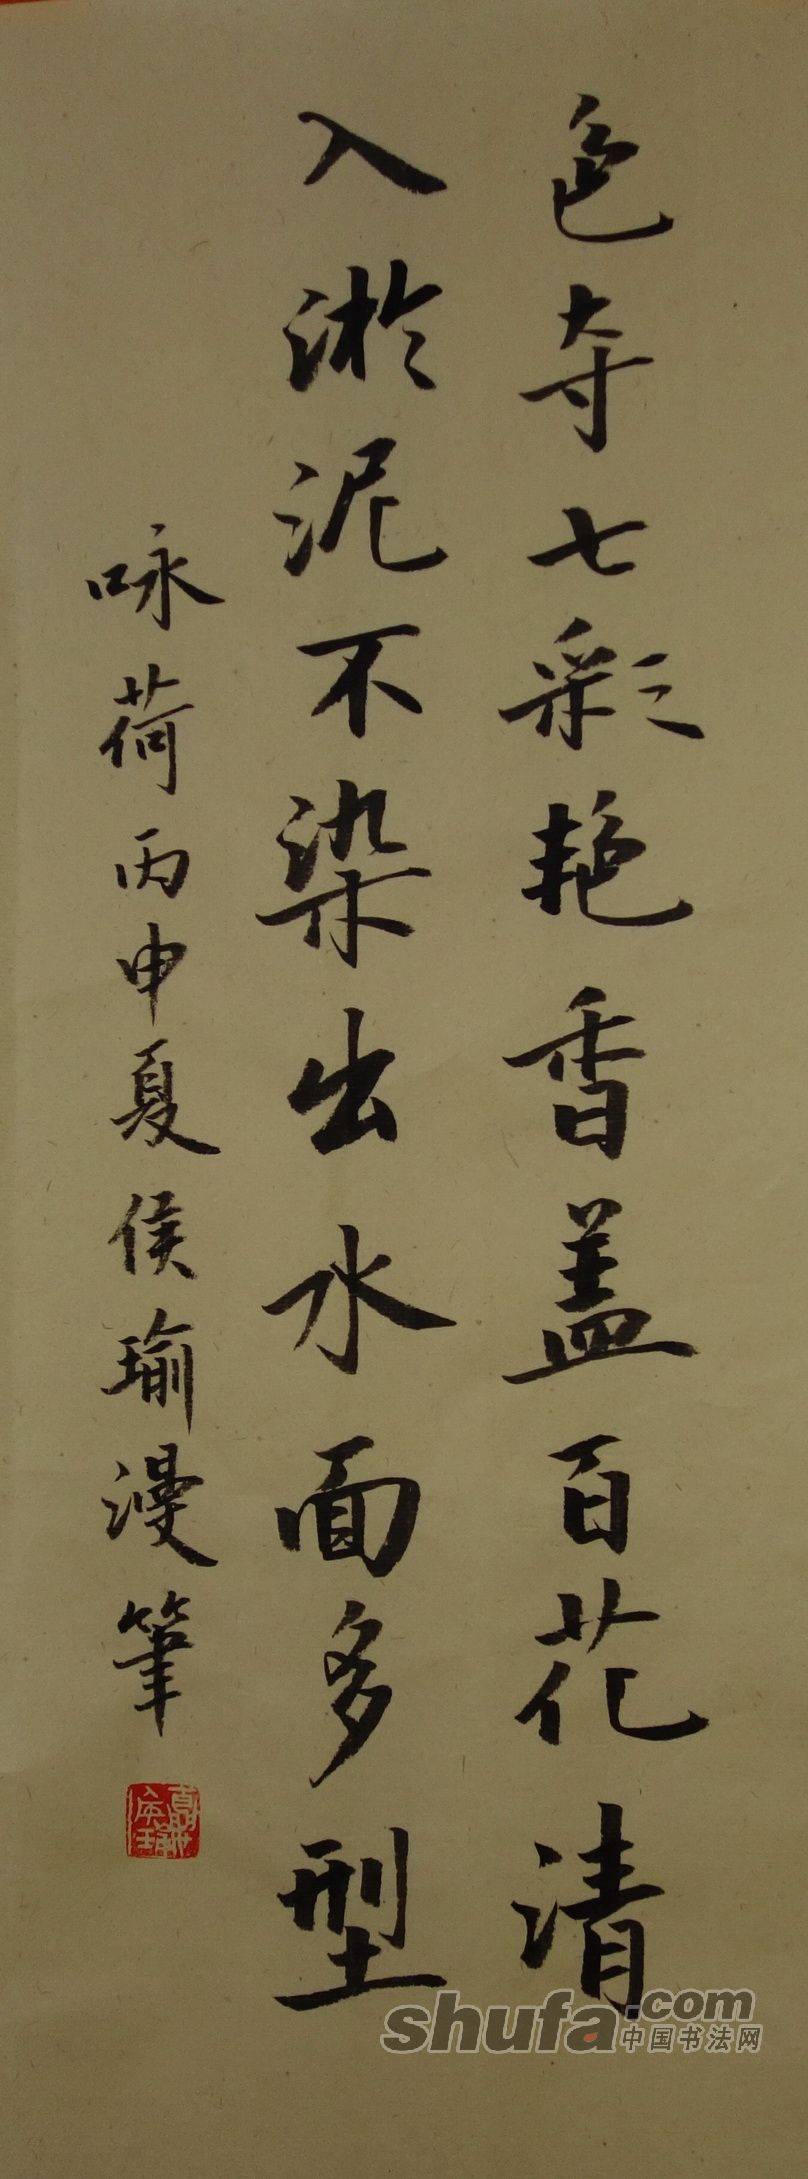 色夺七彩艳香盖百花清
入淤泥不染出水面多型
咏荷丙申夏侯瑜漫筆
shufa.com
中国书法网